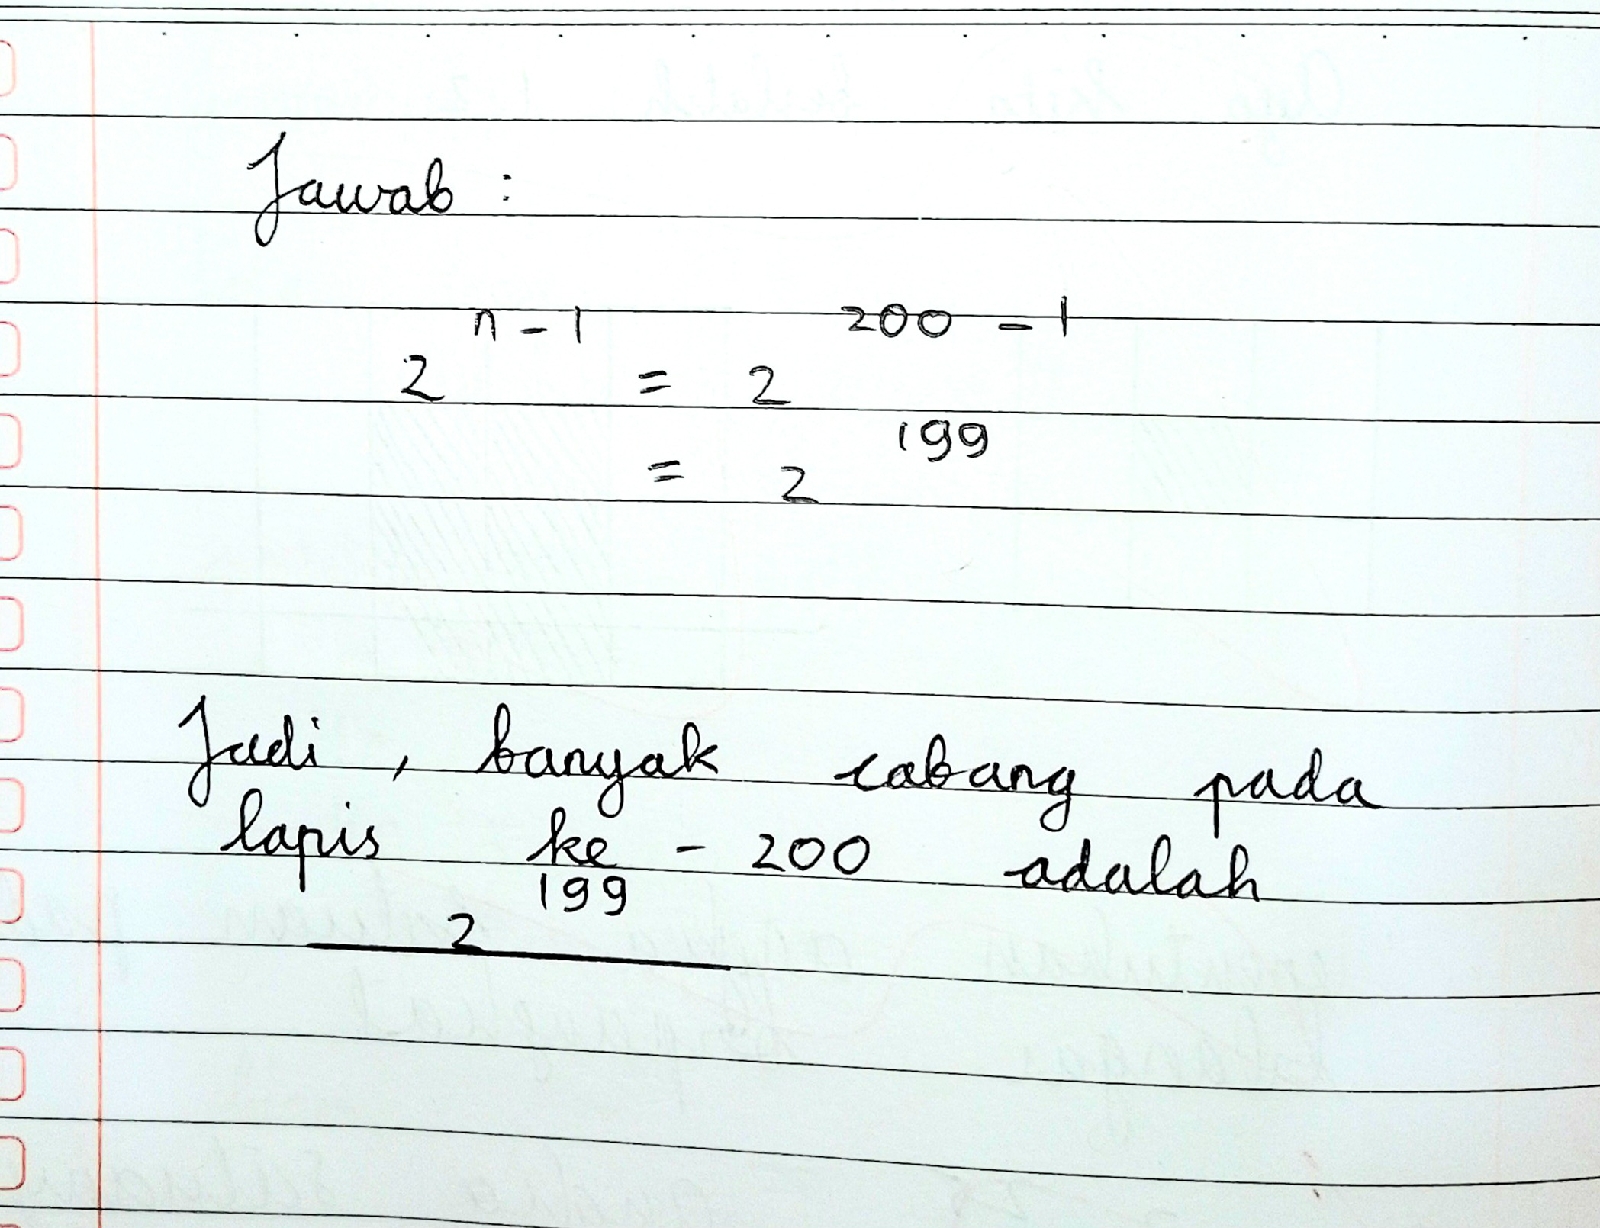 Jawab :
2^{n-1} = 2^{200-1}
= 2^{199}
Jadi, banyak cabang pada
lapis ke-200 adalah
2^{199}